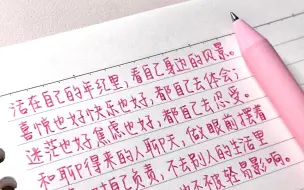 活在自己的年纪里，看自己身边的风景。
喜悦也好快乐也好，都自己去体会；
迷茫也好焦虑也好，都自己去忍受。
和聊得来的人聊天，做眼前摆着
自己负责，不去别人的生活里
也不被轻易影响。